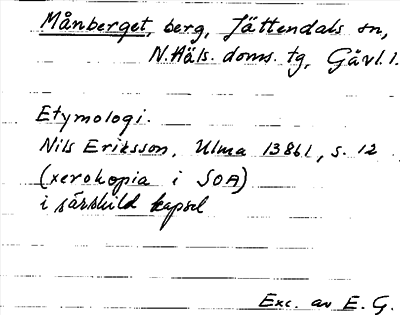 Månberget, berg, Jättendals sn,
N. Häls. doms. tg, Gävl. l.
Etymologi.
Nils Eriksson, Ulma 13861, s. 12
(xerokopia i SOA)
i särskild kapsel
Exc. av E. G.